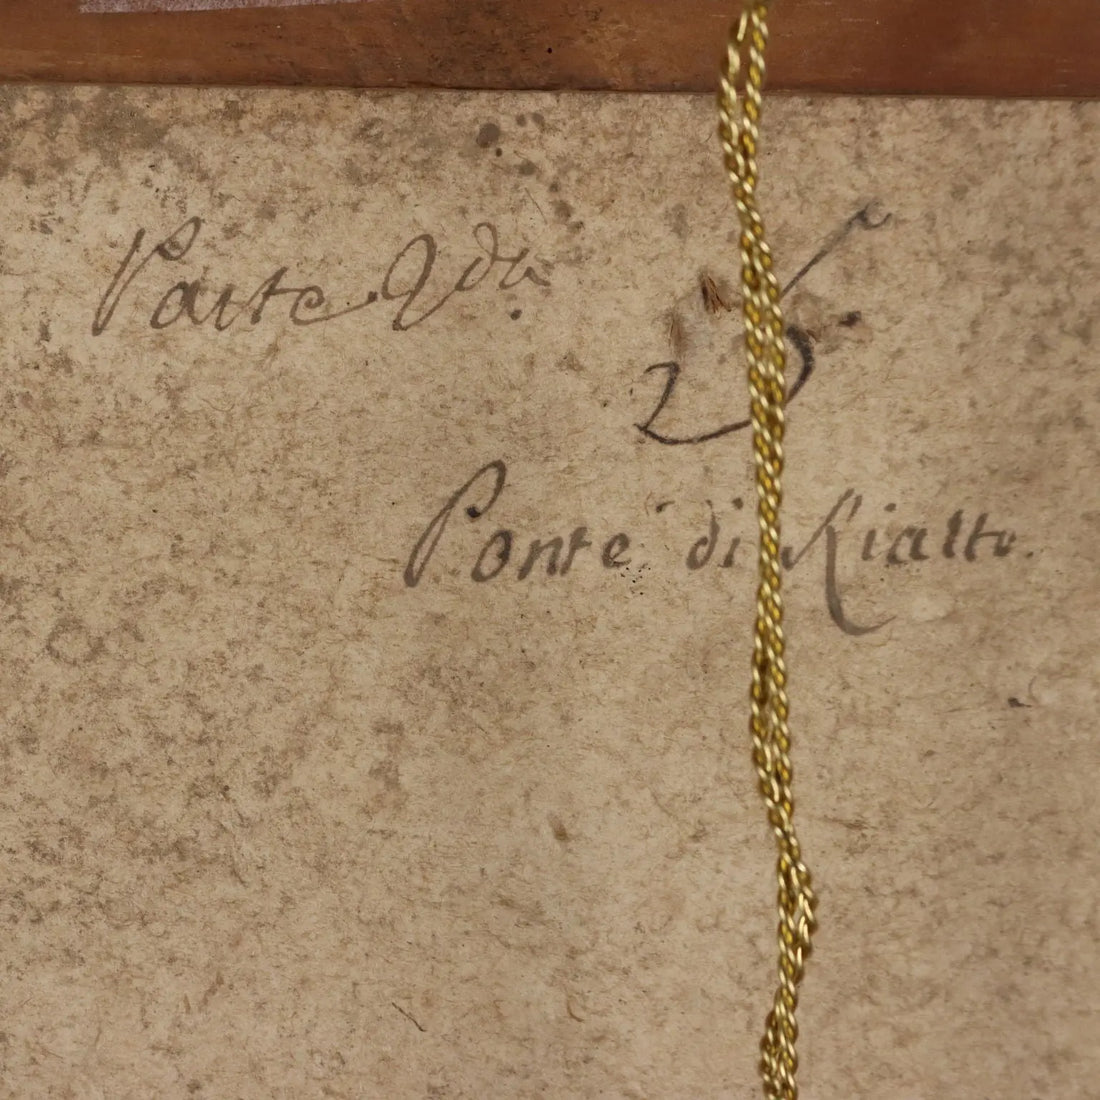 Parte 2da.
25.
Ponte di Rialto.